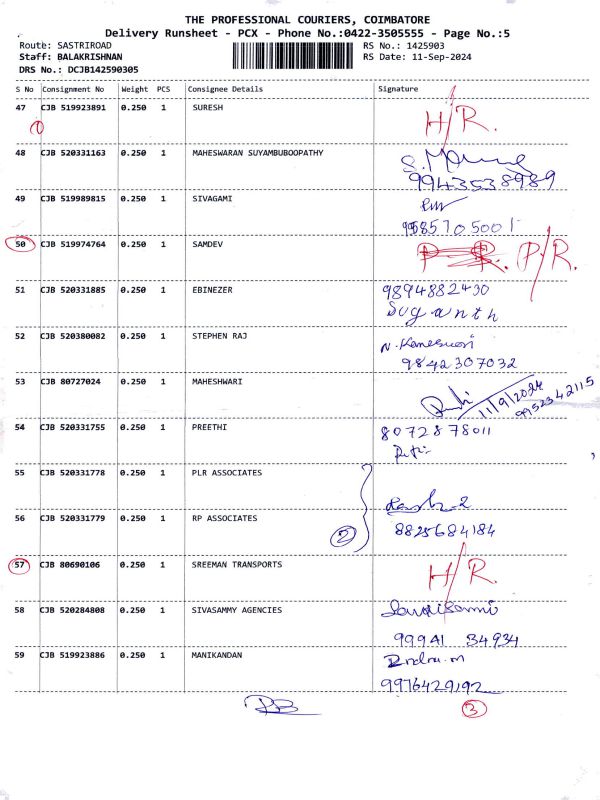 THE PROFESSIONAL COURIERS, COIMBATORE
Delivery Runsheet - PCX - Phone No.:0422-3505555 - Page No.:5
Route: SASTRIROAD RS No.: 1425903
Staff: BALAKRISHNAN RS Date: 11-Sep-2024
DRS No.: DCJB142590305
S No Consignment No Weight PCS Consignee Details Signature
47 CJB 519923891 0.250 1 SURESH H/R.
1
48 CJB 520331163 0.250 1 MAHESWARAN SUYAMBUBOOPATHY
9943538989
49 CJB 519989815 0.250 1 SIVAGAMI
9585705001
50 CJB 519974764 0.250 1 SAMDEV P/R.
51 CJB 520331885 0.250 1 EBINEZER 9894882430
Suganth
52 CJB 520380082 0.250 1 STEPHEN RAJ
9842307032
53 CJB 80727024 0.250 1 MAHESHWARI
11/9/2024
9952342115
54 CJB 520331755 0.250 1 PREETHI 8072878011
55 CJB 520331778 0.250 1 PLR ASSOCIATES
56 CJB 520331779 0.250 1 RP ASSOCIATES
2 8825684184
57 CJB 80690106 0.250 1 SREEMAN TRANSPORTS H/R.
58 CJB 520284808 0.250 1 SIVASAMMY AGENCIES
99941 34934
59 CJB 519923886 0.250 1 MANIKANDAN
9976429192
3